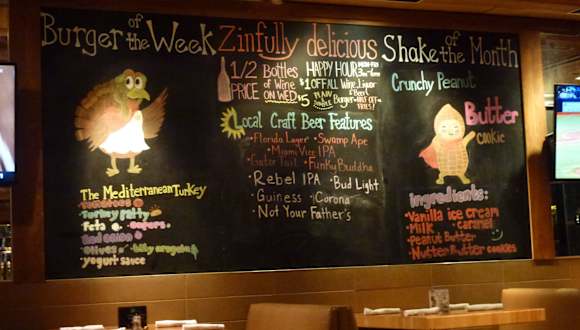 Burger of the Week
The Mediterranean Turkey
Tomatoes
Turkey patty
Feta & capers
Red onion
Olives baby arugula
yogurt sauce
Zinfully delicious
1/2 PRICE Bottles of Wine ON WED.
HAPPY HOUR MON-FRI 3PM-6PM
$1 OFF ALL Wine, Liquor & Beer
$5 Burger
HALF OFF
Local Craft Beer Features
Florida Lager Swamp Ape
Miami Vice IPA
Gator Tail Funky Buddha
Rebel IPA Bud Light
Guiness Corona
Not Your Father's
Shake of the Month
Crunchy Peanut
Butter
cookie
Ingredients:
Vanilla ice cream
Milk caramel
Peanut Butter
Nutter Butter cookies